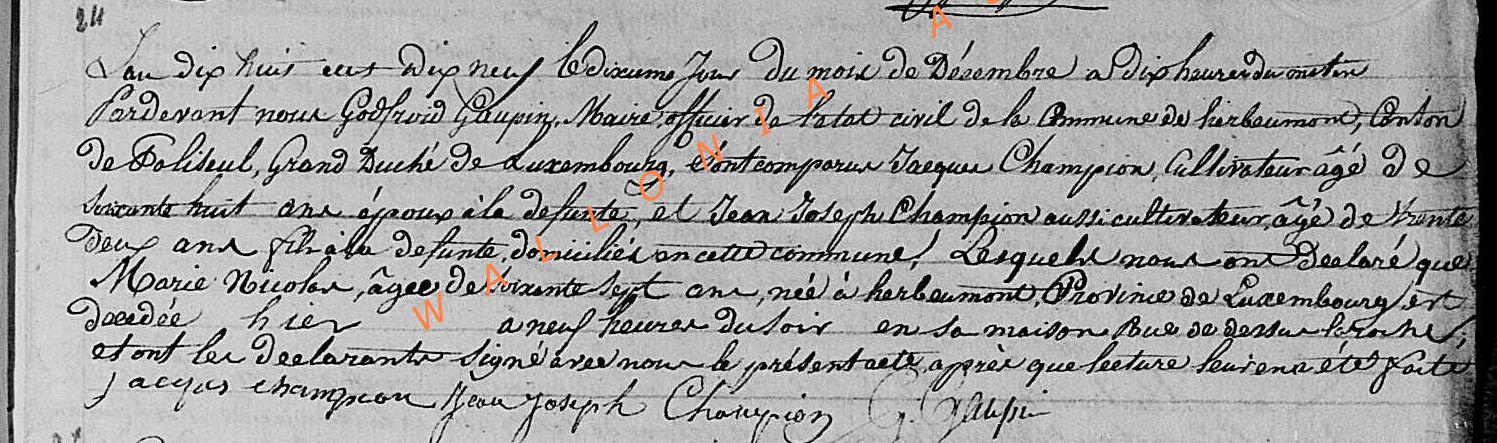 24
L'an dix huit cent dix neuf le dixieme Jour du mois de Décembre a dix heures du matin
Pardevant nous Godfroid Gaupin, Maire, officier de l'etat civil de la Commune de herbeumont, Canton
de Paliseul, Grand Duché de Luxembourg, Sont comparus Jacques Champion, Cultivateur âgé de
soixante huit ans époux à la defunte, et Jean Joseph Champion aussi cultivateur, âgé de trente
deux ans fils à la defunte, domiciliés en cette commune, Lesquels nous ont Declaré que
Marie Nicolas, âgee de soixante sept ans, née à herbeumont, Province de Luxembourg, est
decedée hier a neuf heures du soir en sa maison Rue de dessus laroche,
et ont les declarants signé avec nous le présent acte, après que lecture leur en a été faite
jacques champion Jean Joseph Champion G. Gaupin
WALLONIA